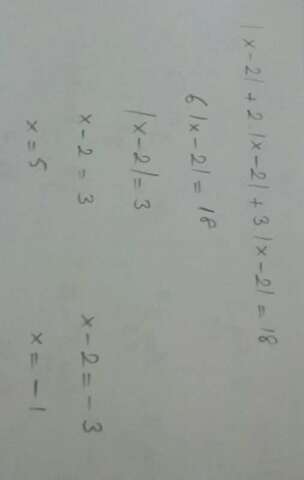 |x-2|+2.|x-2|+3.|x-2|=18
6|x-2|=18
|x-2|=3
x-2=3 x-2=-3
x=5 x=-1